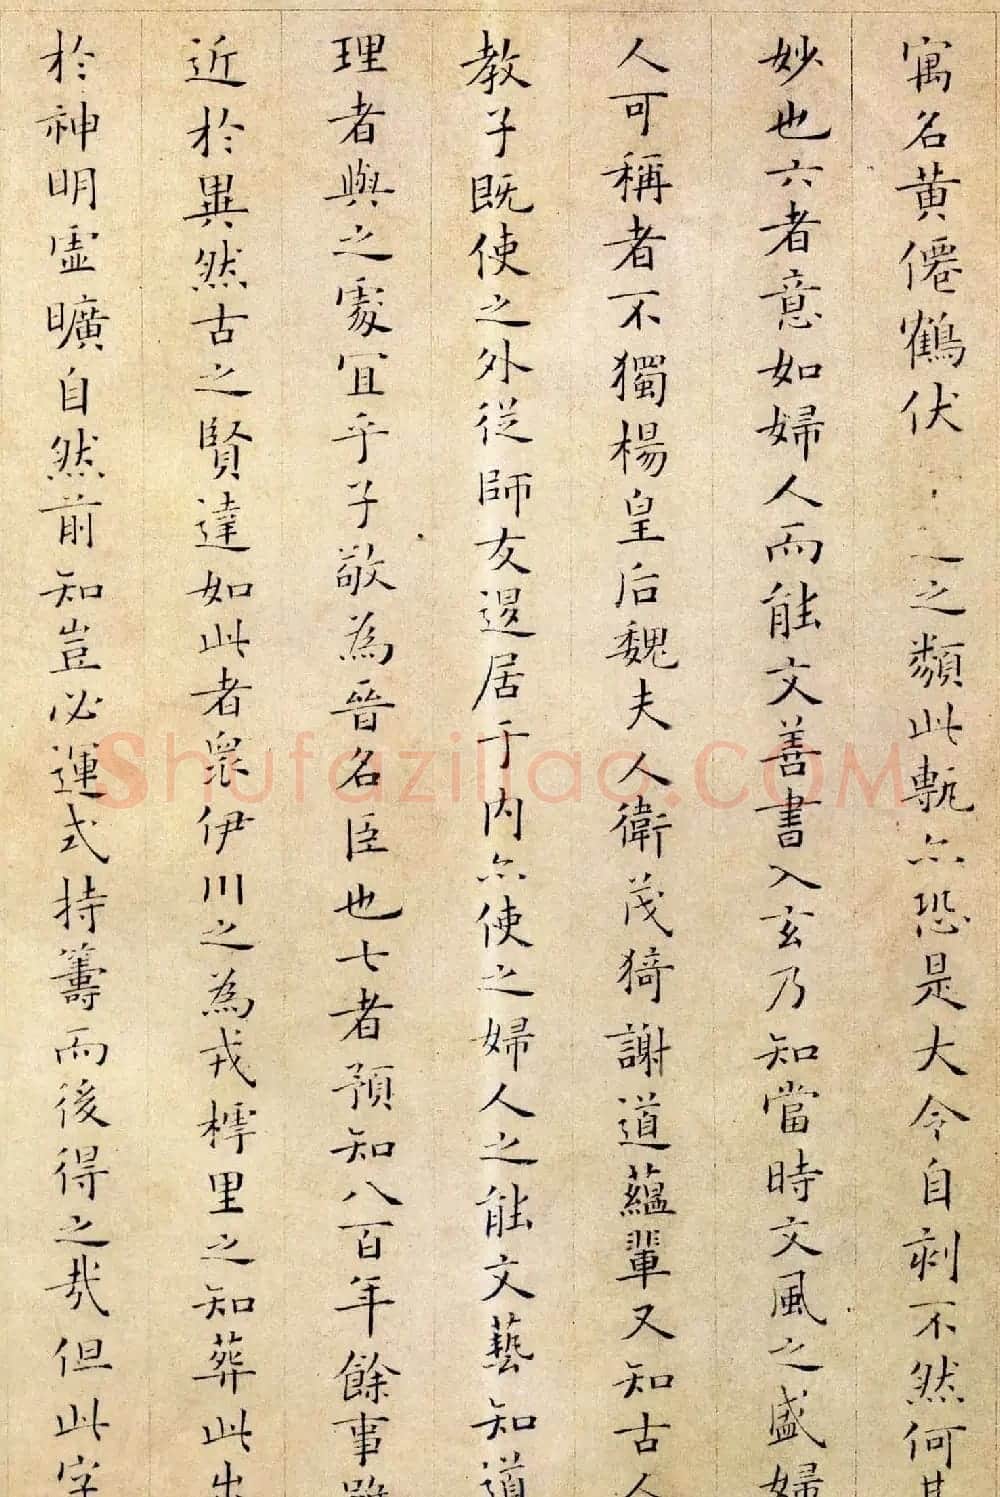 寓名黃僊鶴伏之之類此輒亦恐是大令自刻不然何其
妙也六者意如婦人而能文善書入玄乃知當時文風之盛婦
人可稱者不獨楊皇后魏夫人衛茂猗謝道蘊輩又知古人
教子既使之外從師友退居于内亦使之婦人之能文藝知道
理者與之處宜乎子敬為晉名臣也七者預知八百年餘事雖
近於異然古之賢達如此者衆伊川之為戎樗里之知葬此出
於神明虛曠自然前知豈必運式持籌而後得之哉但此字
ShufaziLiao.COM